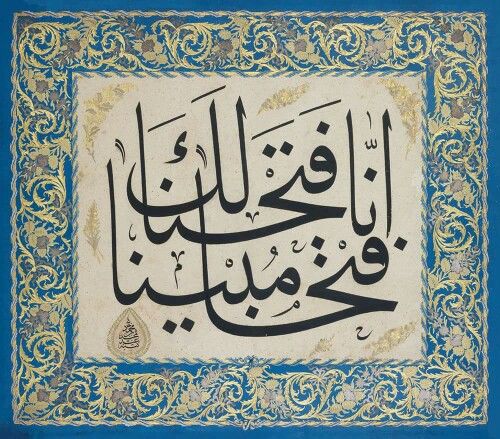 إنّا فَتَحْنَا لَكَ
فَتْحًا مُبِينًا